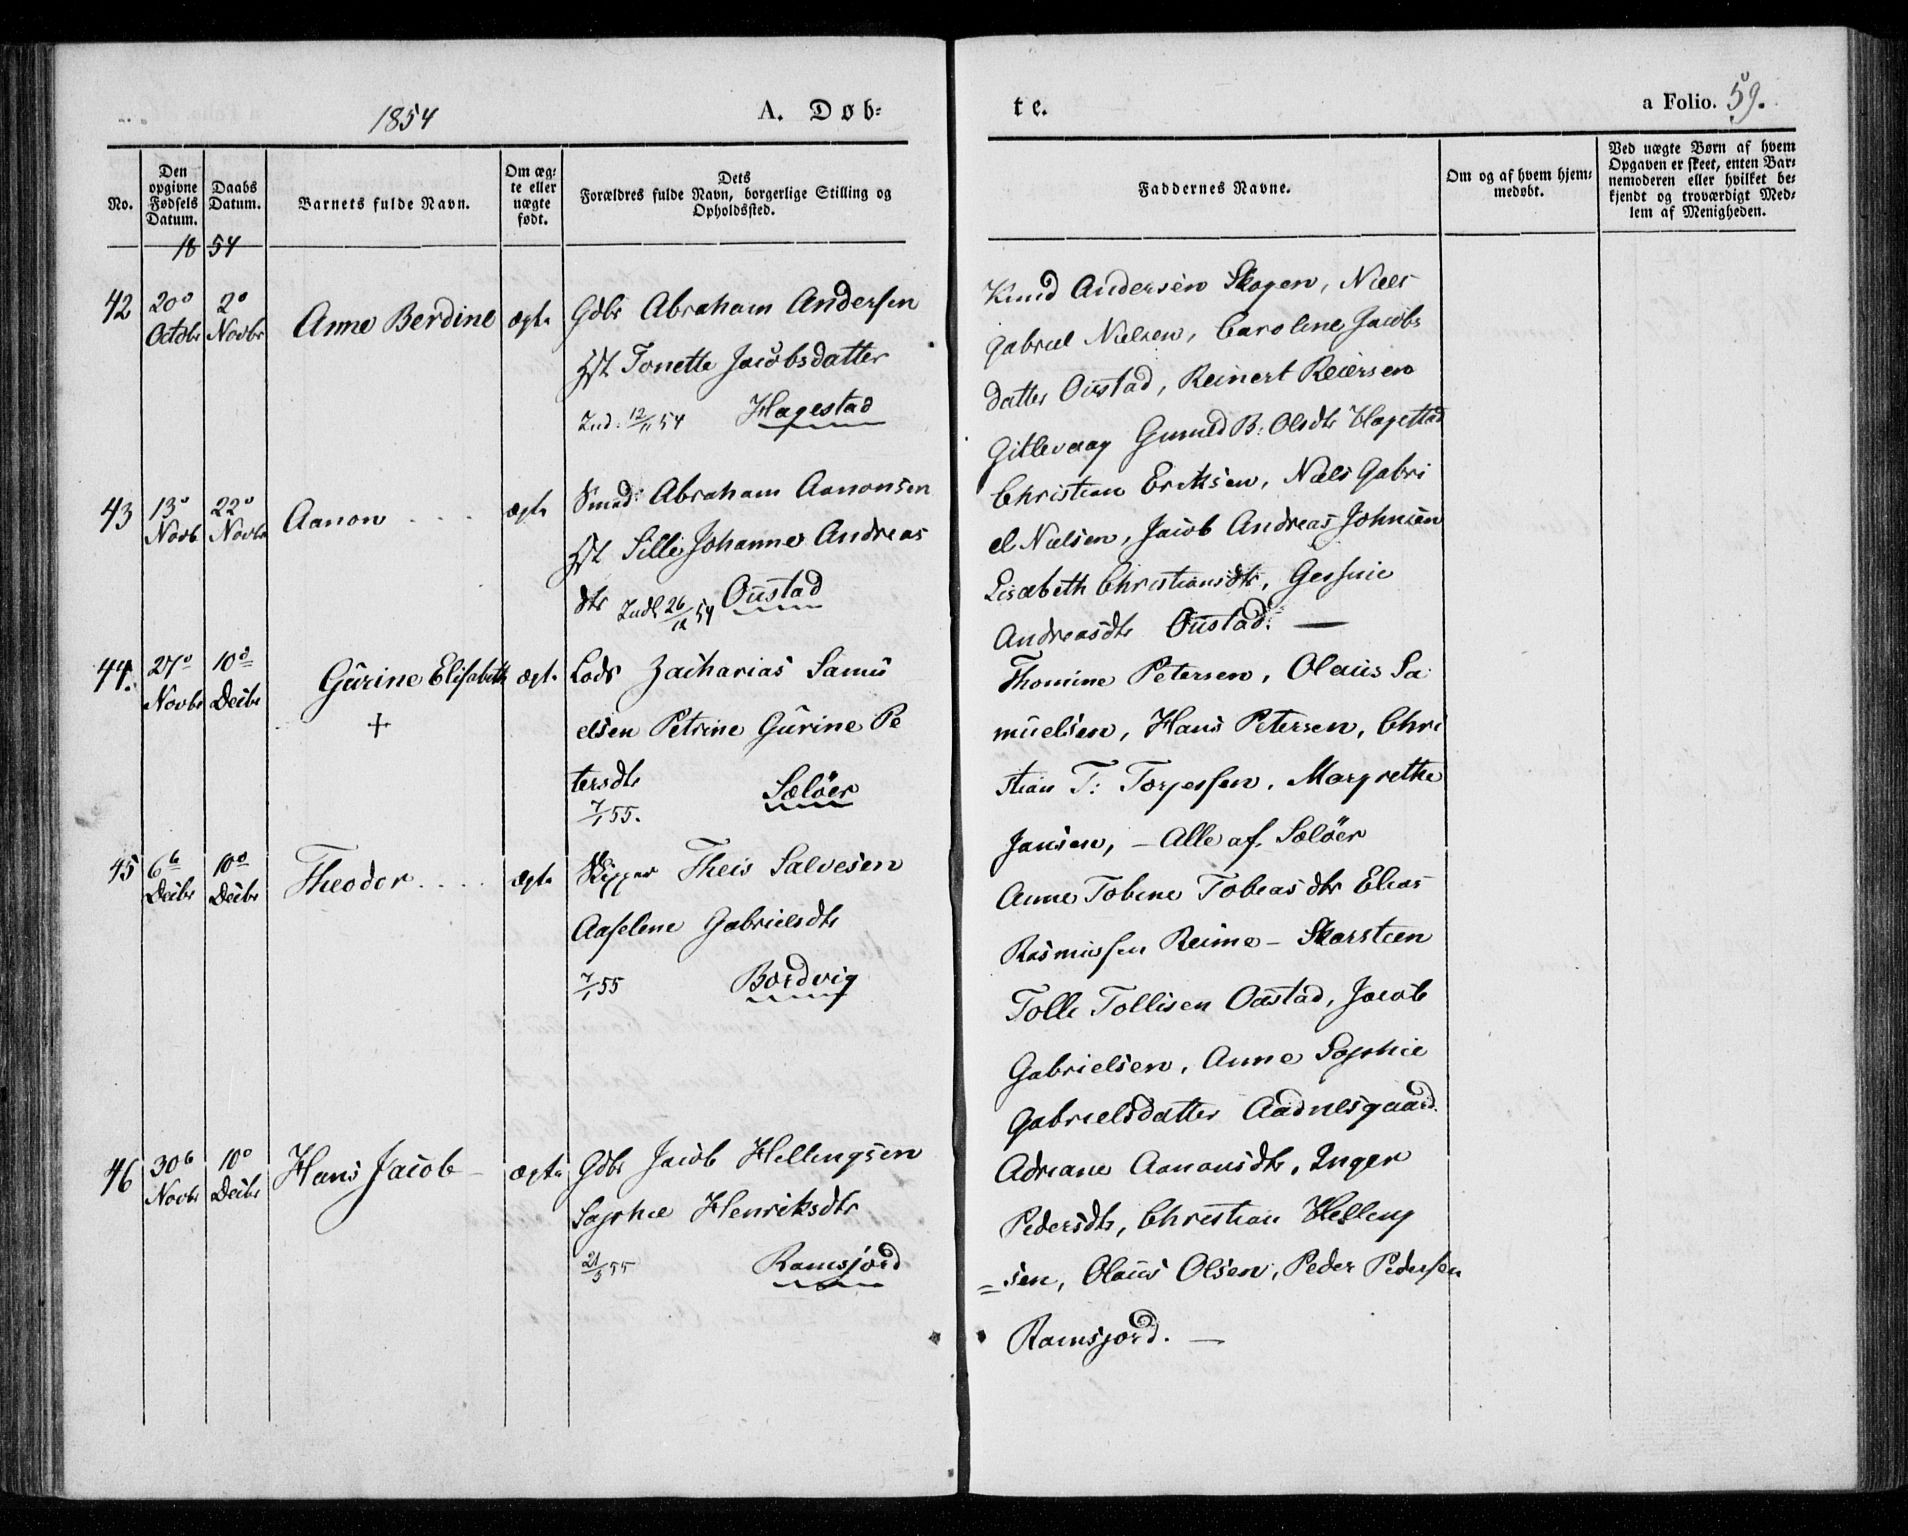 1854
A. Døb=
te.
a Folio. 59.
No.
Den opgivne Fødsels Datum.
Daabs Datum.
Barnets fulde Navn.
Om ægte eller nægte født.
Dets Forældres fulde Navn, borgerlige Stilling og Opholdssted.
Faddernes Navne.
Om og af hvem hjemmedøbt.
Ved uægte Børn af hvem Opgaven er skeet, enten Barnemoderen eller hvilket bekjendt og troværdigt Medlem af Menigheden.
1854
42 20° Octobr 2° Novbr Anne Berdine ægte Gdbr Abraham Andersen
Hst Tonette Jacobsdatter
Ind. 12/11 54 Hagestad
Knud Andersen Skogen, Niels
Gabriel Nielsen, Caroline Jacobs
datter Oustad, Reinert Reiersen
Gitlevaag Gunild B: Olsdtr Hagestad
43 13° Novb 22° Novbr Aanon ægte Smed: Abraham Aanonsen
Hst Sille Johanne Andreas
dtr Indl 26/12 54 Oustad
Christian Eriksen, Niels Gabri
el Nielsen, Jacob Andreas Johnsen
Lisabeth Christiansdtr, Gessine
Andreasdtr Oustad. —
44. 27° Novbr 10° Decbr Gurine Elisabeth + ægt. Lods Zacharias Samu
elsen Petrine Gurine Pe
tersdtr Sæløer
7/1 55.
Thomine Petersen, Olaus Sa
muelsen, Hans Petersen, Chri
stian T: Torjessen. Margrethe
Jansen, — Alle af Sæløer
45 6te Decbr 10° Decbr Theodor .... ægte Skipper Theis Salvesen
Aaselene Gabrielsdtr
7/1 55 Bordvig
Anne Tobine Tobiasdtr Elias
Rasmussen Reime — Skarsteen
Tolle Tollisen Oustad, Jacob
Gabrielsen, Anne Sophie
Gabrielsdatter Aadnesgaard.
46 30te Novbr 10° Decbr Hans Jacob — ægte Gdbr Jacob Hellengsen
Sophie Henriksdtr
21/3 55 Ramsjord
Adriane Aanonsdtr, Inger
Pedersdtr, Christian Helleng
=sen, Olaus Olsen, Peder Pedersen
Ramsjord. —